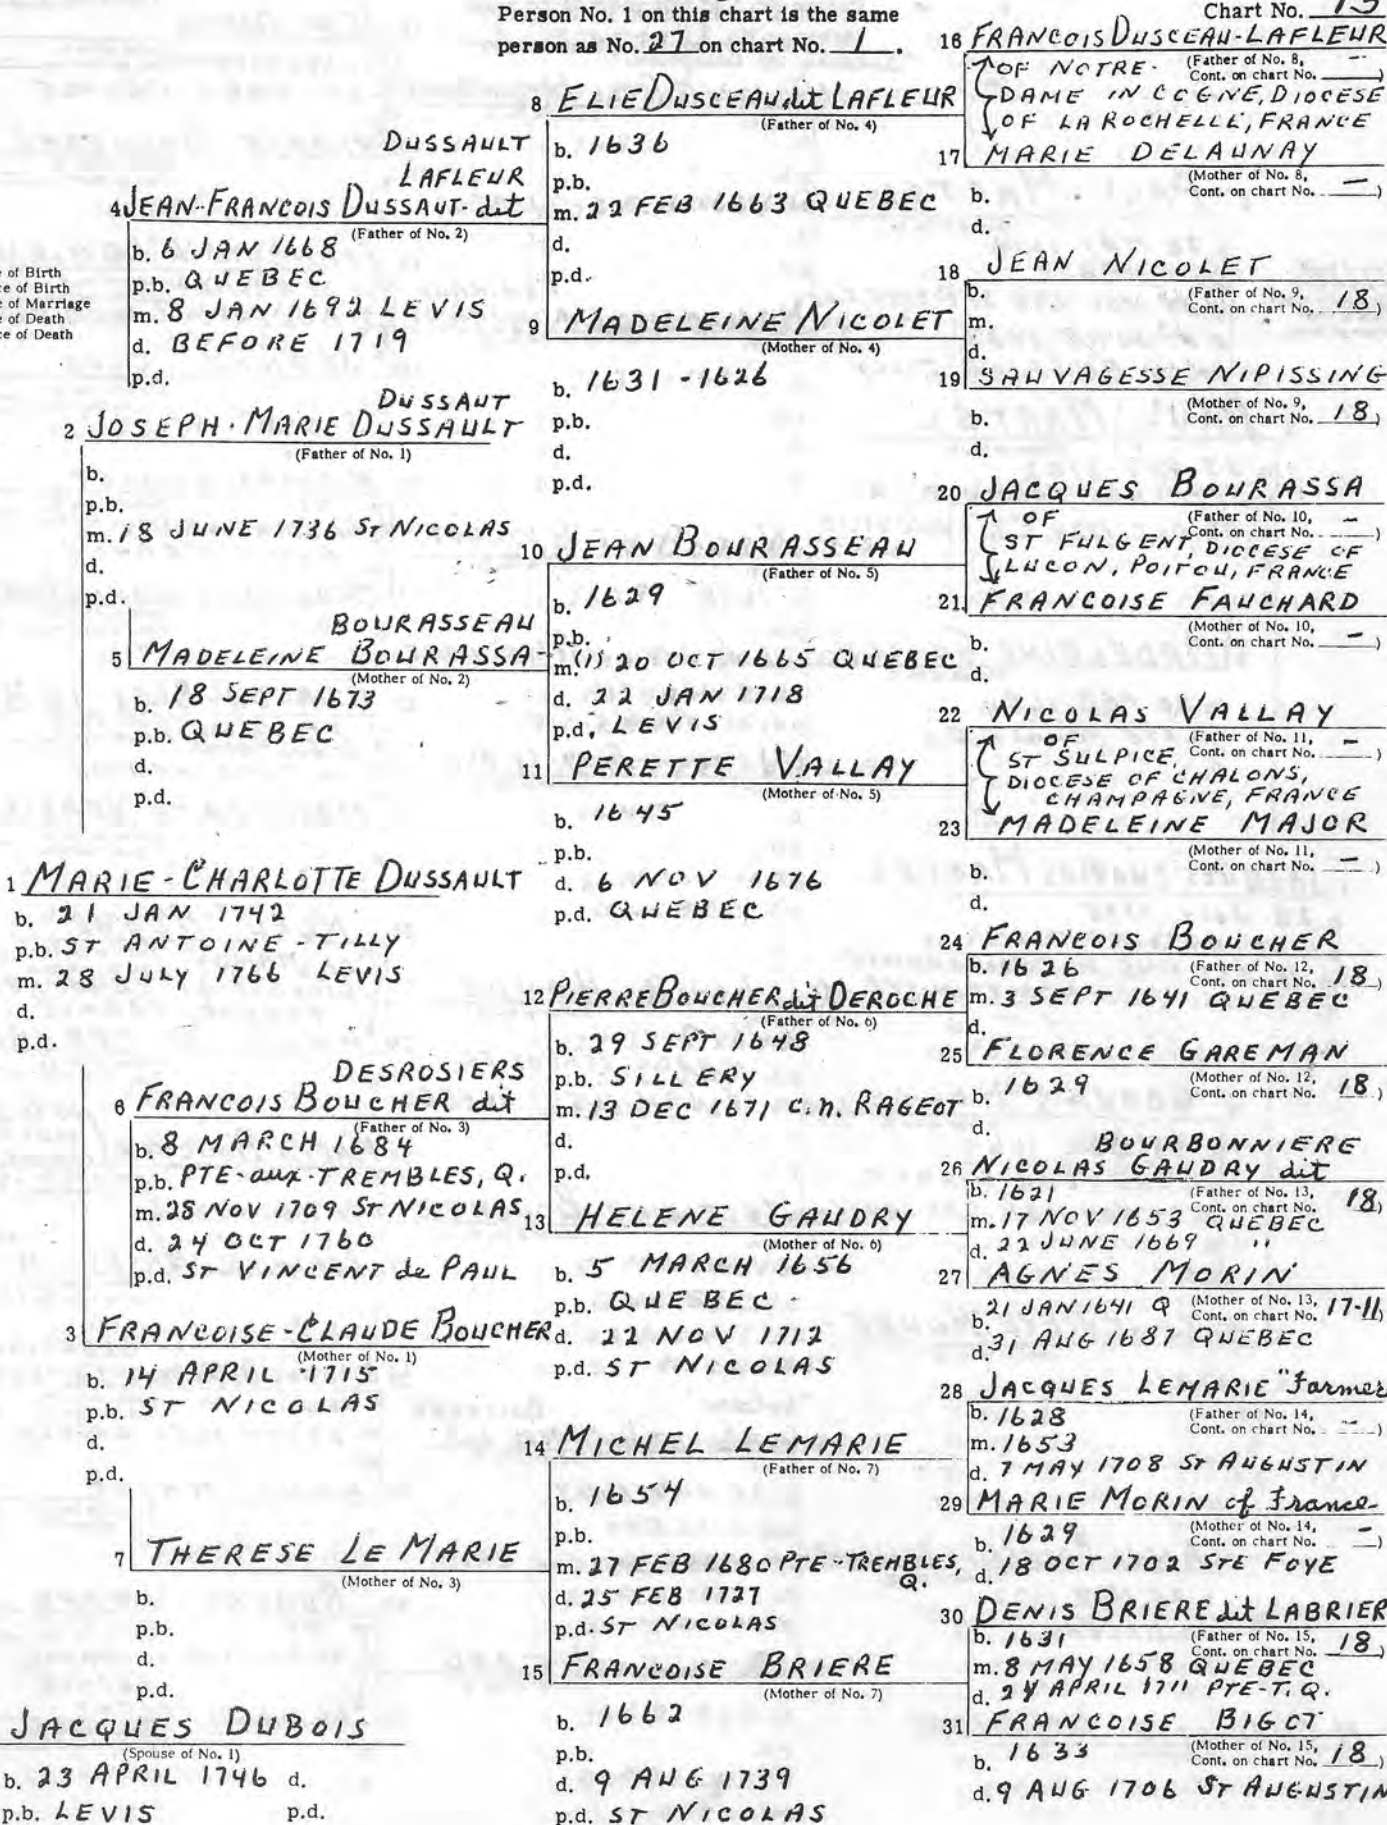 Person No. 1 on this chart is the same
person as No. 27 on chart No. 1.
Chart No. 13
e of Birth
ce of Birth
e of Marriage
e of Death
ce of Death
1 MARIE-CHARLOTTE DUSSAULT
b. 21 JAN 1742
p.b. ST ANTOINE-TILLY
m. 28 JULY 1766 LEVIS
d.
p.d.
JACQUES DUBOIS
(Spouse of No. 1)
b. 23 APRIL 1746 d.
p.b. LEVIS p.d.
DUSSAUT
2 JOSEPH-MARIE DUSSAULT
(Father of No. 1)
b.
p.b.
m. 18 JUNE 1736 ST NICOLAS
d.
p.d.
3 FRANCOISE-CLAUDE BOUCHER
(Mother of No. 1)
b. 14 APRIL 1715
p.b. ST NICOLAS
d.
p.d.
DUSSAULT
LAFLEUR
4 JEAN-FRANCOIS DUSSAUT-dit
(Father of No. 2)
b. 6 JAN 1668
p.b. QUEBEC
m. 8 JAN 1692 LEVIS
d. BEFORE 1719
p.d.
BOURASSEAU
5 MADELEINE BOURASSA-
(Mother of No. 2)
b. 18 SEPT 1673
p.b. QUEBEC
d.
p.d.
DESROSIERS
6 FRANCOIS BOUCHER dit
(Father of No. 3)
b. 8 MARCH 1684
p.b. PTE-aux-TREMBLES, Q.
m. 28 NOV 1709 ST NICOLAS
d. 24 OCT 1760
p.d. ST VINCENT de PAUL
7 THERESE LE MARIE
(Mother of No. 3)
b.
p.b.
d.
p.d.
8 ELIE DUSCEAU dit LAFLEUR
(Father of No. 4)
b. 1636
p.b.
m. 22 FEB 1663 QUEBEC
d.
p.d.
9 MADELEINE NICOLET
(Mother of No. 4)
b. 1631-1626
p.b.
d.
p.d.
10 JEAN BOURASSEAU
(Father of No. 5)
b. 1629
p.b.
m. (1) 20 OCT 1665 QUEBEC
d. 22 JAN 1718
p.d. LEVIS
11 PERETTE VALLAY
(Mother of No. 5)
b. 1645
p.b.
d. 6 NOV 1676
p.d. QUEBEC
12 PIERRE BOUCHER dit DEROCHE
(Father of No. 6)
b. 29 SEPT 1648
p.b. SILLERY
m. 13 DEC 1671 C.N. RAGEOT
d.
p.d.
13 HELENE GAUDRY
(Mother of No. 6)
b. 5 MARCH 1656
p.b. QUEBEC
d. 22 NOV 1712
p.d. ST NICOLAS
14 MICHEL LEMARIE
(Father of No. 7)
b. 1654
p.b.
m. 27 FEB 1680 PTE-TREMBLES, Q.
d. 25 FEB 1727
p.d. ST NICOLAS
15 FRANCOISE BRIERE
(Mother of No. 7)
b. 1662
p.b.
d. 9 AUG 1739
p.d. ST NICOLAS
16 FRANCOIS DUSCEAU-LAFLEUR
(Father of No. 8,
Cont. on chart No. —)
OF NOTRE-
DAME IN COGNE, DIOCESE
OF LA ROCHELLE, FRANCE
17 MARIE DELAUNAY
(Mother of No. 8,
Cont. on chart No. —)
b.
d.
18 JEAN NICOLET
b. (Father of No. 9,
m. Cont. on chart No. 18)
d.
19 SAUVAGESSE NIPISSING
(Mother of No. 9,
b. Cont. on chart No. 18)
d.
20 JACQUES BOURASSA
(Father of No. 10,
Cont. on chart No. —)
OF
ST FULGENT, DIOCESE OF
LUCON, POITOU, FRANCE
21 FRANCOISE FAUCHARD
(Mother of No. 10,
b. Cont. on chart No. —)
d.
22 NICOLAS VALLAY
(Father of No. 11,
Cont. on chart No. —)
OF
ST SULPICE,
DIOCESE OF CHALONS,
CHAMPAGNE, FRANCE
23 MADELEINE MAJOR
(Mother of No. 11,
b. Cont. on chart No. —)
d.
24 FRANCOIS BOUCHER
b. 1626 (Father of No. 12,
Cont. on chart No. 18)
m. 3 SEPT 1641 QUEBEC
d.
25 FLORENCE GAREMAN
b. 1629 (Mother of No. 12,
Cont. on chart No. 18)
d.
BOURBONNIERE
26 NICOLAS GAUDRY dit
b. 1621 (Father of No. 13,
Cont. on chart No. 18)
m. 17 NOV 1653 QUEBEC
d. 22 JUNE 1669 "
27 AGNES MORIN
b. 21 JAN 1641 Q (Mother of No. 13,
Cont. on chart No. 17-11)
d. 31 AUG 1687 QUEBEC
28 JACQUES LEMARIE "Farmer
b. 1628 (Father of No. 14,
Cont. on chart No. —)
m. 1653
d. 7 MAY 1708 ST AUGUSTIN
29 MARIE MORIN of France
b. 1629 (Mother of No. 14,
Cont. on chart No. —)
d. 18 OCT 1702 STE FOYE
30 DENIS BRIERE dit LABRIER
b. 1631 (Father of No. 15,
Cont. on chart No. 18)
m. 8 MAY 1658 QUEBEC
d. 24 APRIL 1711 PTE-T. Q.
31 FRANCOISE BIGOT
b. 1633 (Mother of No. 15,
Cont. on chart No. 18)
d. 9 AUG 1706 ST AUGUSTIN